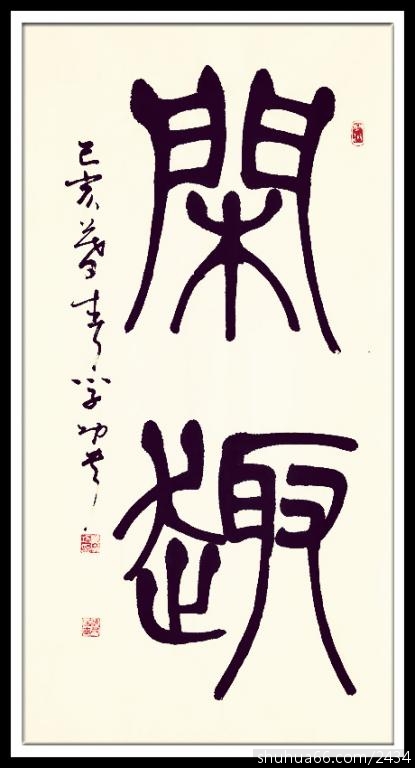 閑趣
己亥暮春学功书
shuhua66.com/2434